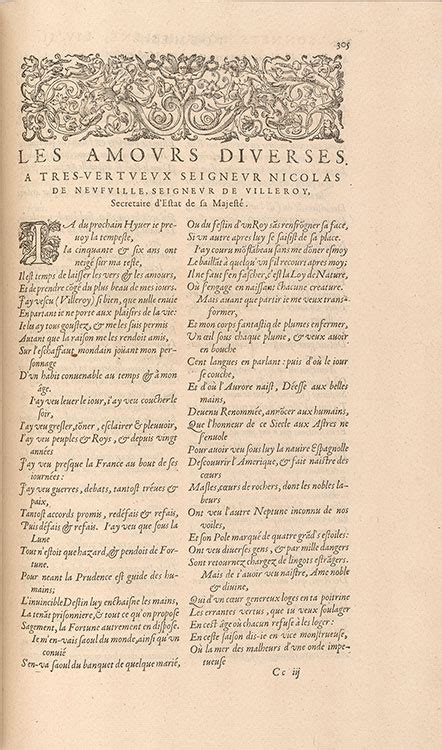 305
LES AMOVRS DIVERSES.
A TRES-VERTVEVX SEIGNEVR NICOLAS
DE NEVFVILLE, SEIGNEVR DE VILLEROY,
Secretaire d'Estat de sa Majesté.
IA du prochain Hyuer ie pre-
uoy la tempeste,
Ia cinquante & six ans ont
neigé sur ma teste,
Il est temps de laisser les vers & les amours,
Et de prendre cōgé du plus beau de mes iours.
J'ay vescu (Villeroy) si bien, que nulle enuie
En partant ie ne porte aux plaisirs de la vie:
Ie les ay tous goustez, & me les suis permis
Autant que la raison me les rendoit amis,
Sur l'eschaffaut mondain joüant mon per-
sonnage
D'vn habis conuenable au temps & à mon
âge.
I'ay veu leuer le iour, i'ay veu coucher le
soir,
I'ay veu gresler, tōner, esclairer & pleuuoir,
I'ay veu peuples & Roys, & depuis vingt
années
I'ay veu presque la France au bout de ses
iournées:
I'ay veu guerres, debats, tantost tréues &
paix,
Tantost accords promis, redéfais & refais,
Puis défais & refais. I'ay veu que sous la
Lune
Tout n'estoit que hazard, & pendoit de For-
tune.
Pour neant la Prudence est guide des hu-
mains;
L'inuincible Destin luy enchaisne les mains,
La tenāt prisonniere, & tout ce qu'on propose
Sagement, la Fortune autrement en dispose.
Ie m'en-vais saoul du monde, ainsi qu'vn
conuié
S'en-va saoul du banquet de quelque marié,
Ou du festin d'vn Roy sās renfrōgner sa face,
Si vn autre apres luy se saisist de sa place.
I'ay couru mō flābeau sans me dōner esmoy
Le baillāt à quelqu'vn s'il recourt apres moy:
Il ne faut s'en fascher, c'est la Loy de Nature,
Où s'engage en naissant chacune creature.
Mais auant que partir ie me veux trans-
former,
Et mon corps fantastiq de plumes enfermer,
Vn œil sous chaque plume, & veux auoir
en bouche
Cent langues en parlant: puis d'où le iour
se couche,
Et d'où l'Aurore naist, Déesse aux belles
mains,
Deuenu Renommée, annōcer aux humains,
Que l'honneur de ce Siecle aux Astres ne
s'enuole
Pour auoir veu sous luy la nauire Espagnolle
Descouurir l'Amerique, & fait naistre des
cœurs
Masles, cœurs de rochers, dont les nobles la-
beurs
Ont veu l'autre Neptune inconnu de nos
voiles,
Et son Pole marqué de quatre grād's estoiles:
Ont veu diuerses gens, & par mille dangers
Sont retournez chargez de lingots estrāgers.
Mais de t'auoir veu naistre, Ame noble
& diuine,
Qui d'vn cœur genereux loges en ta poitrine
Les errantes vertus, que tu veux soulager
En cest âge où chacun refuse à les loger:
En ceste saison dis-ie en vice monstrueuse,
Où la mer des malheurs d'vne onde impe-
tueuse
Cc iij